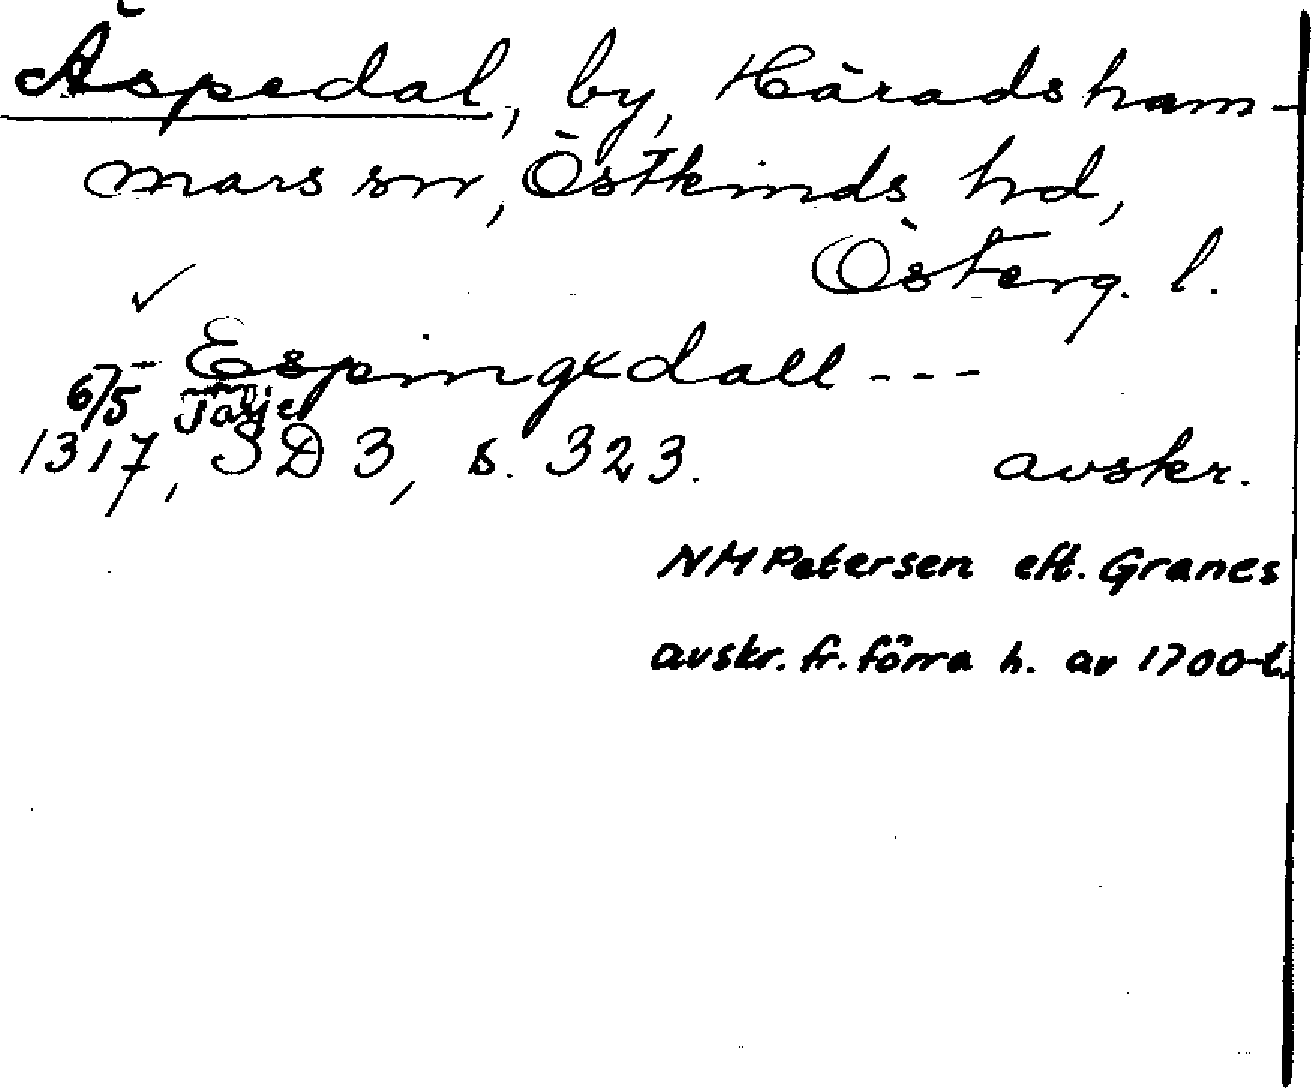 Äspedal, by, Häradsham-
mars sn, Östkinds hd,
Österg. l.
- Espingxdall ---
6/5 Tälje
1317, SD 3, s. 323. avskr.
NM Petersen eft. Granes
avskr. fr. förra h. av 1700-t.